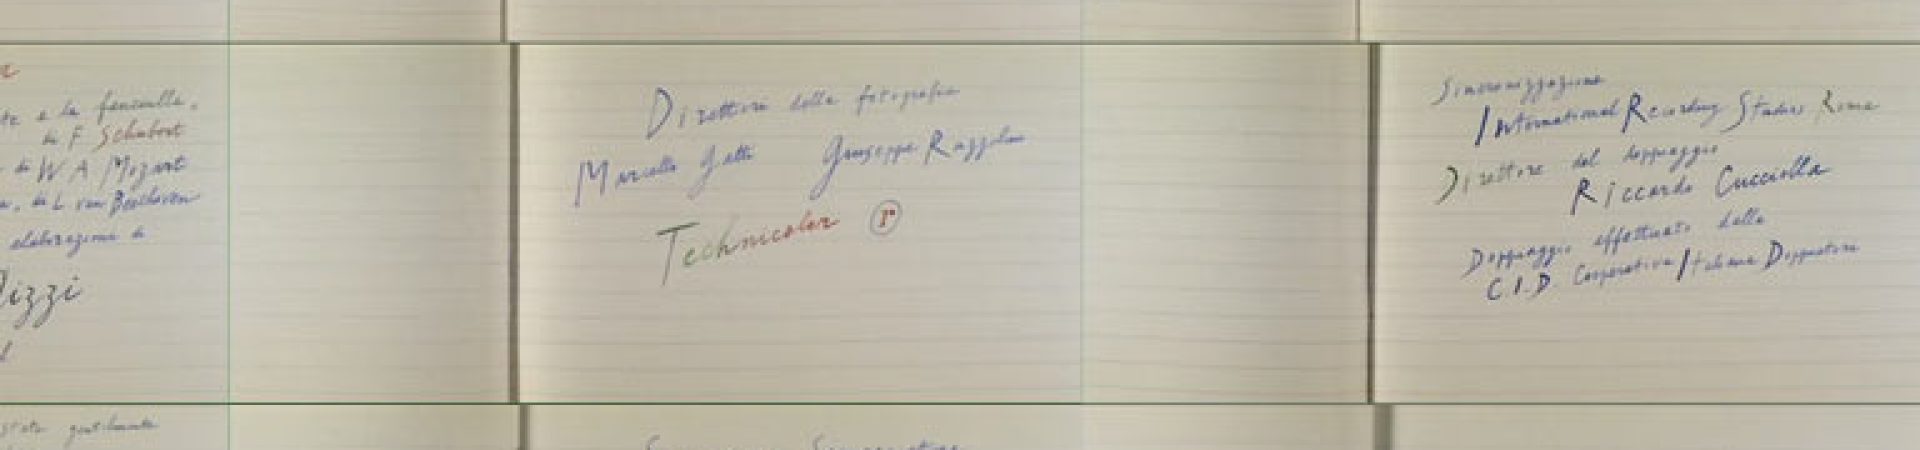 e la fanciulla,
di F Schubert
di W A Mozart
di L van Beethoven
elaborazione
Direttori della fotografia
Marcello Gatti Giuseppe Ruzzolini
Technicolor ®
Sincronizzazione
International Recording Studios Roma
Direttore del doppiaggio
Riccardo Cucciolla
Doppiaggio effettuato dalla
C.I.D. Cooperativa Italiana Doppiatori
stato gentilmente